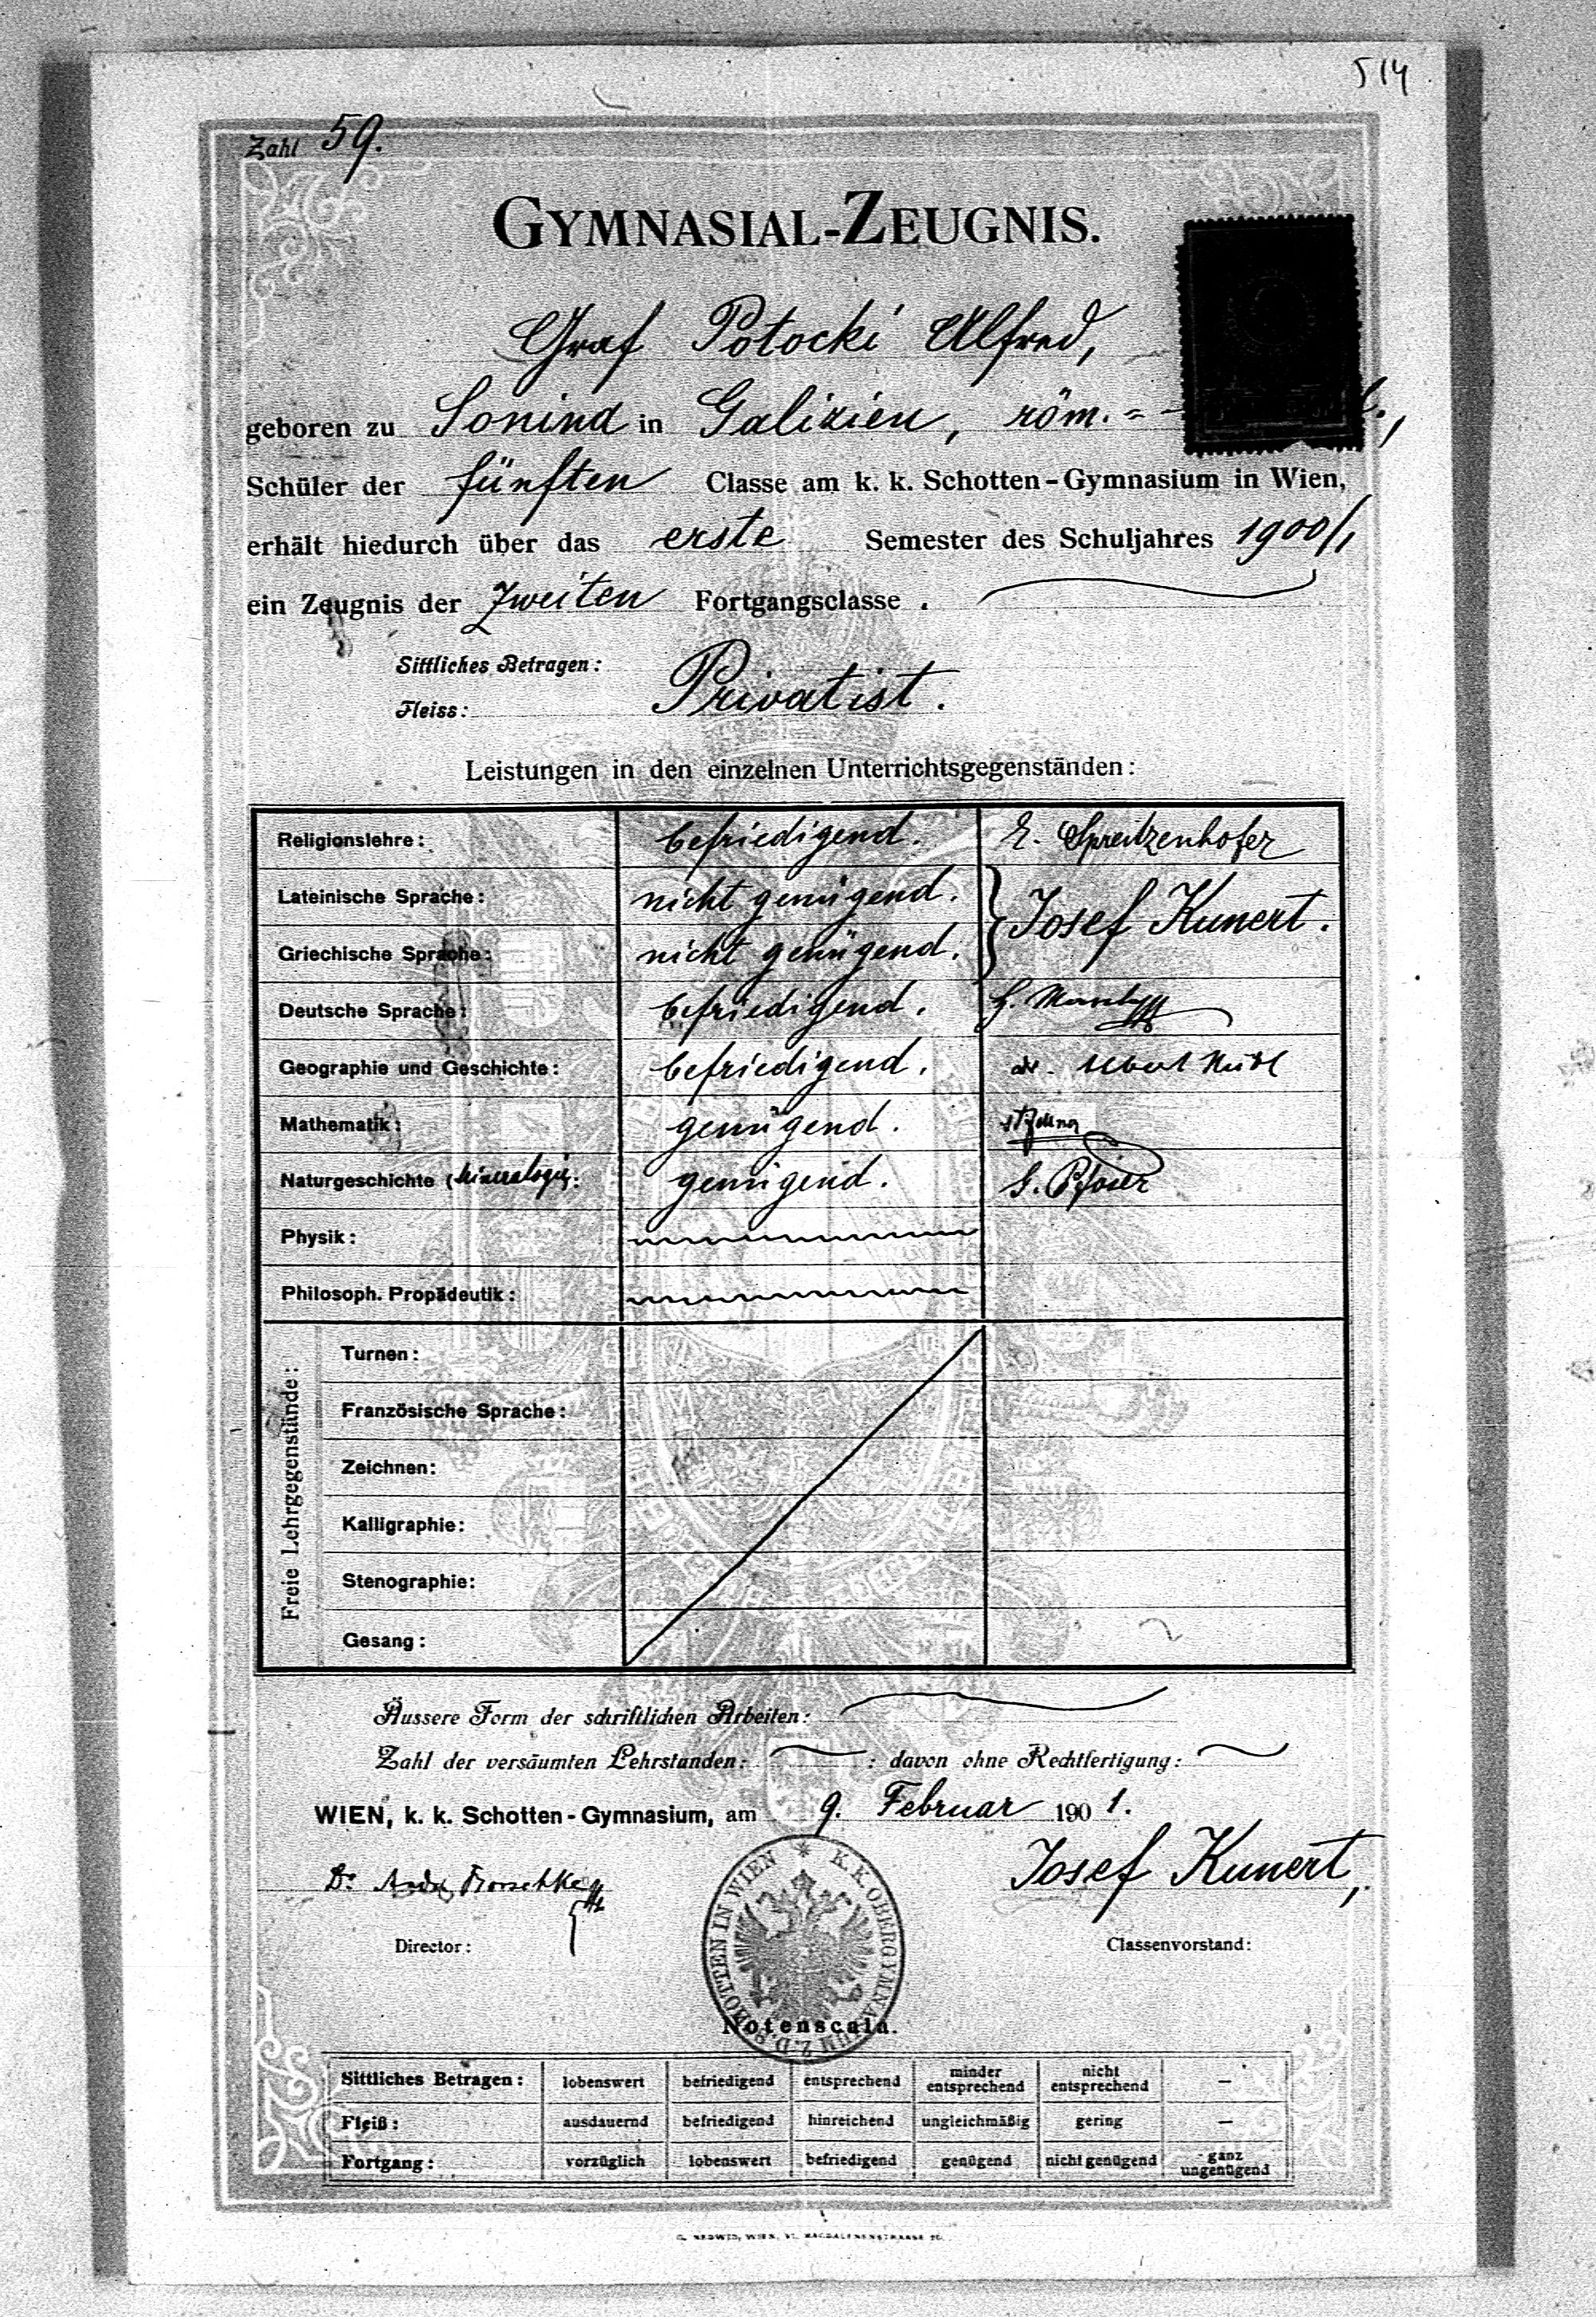 514
Zahl 59.
GYMNASIAL-ZEUGNIS.
Graf Potocki Alfred,
geboren zu Sonina in Galizien, röm.=
Schüler der fünften Classe am k. k. Schotten-Gymnasium in Wien,
erhält hiedurch über das erste Semester des Schuljahres 1900/1
ein Zeugnis der zweiten Fortgangsclasse .
Sittliches Betragen:
Privatist.
Fleiss:
Leistungen in den einzelnen Unterrichtsgegenständen:
Religionslehre: befriedigend. E. Spreitzenhofer
Lateinische Sprache: nicht genügend. Josef Kunert.
Griechische Sprache: nicht genügend.
Deutsche Sprache: befriedigend.
Geographie und Geschichte: befriedigend. Dr. Albert Hübl
Mathematik: genügend.
Naturgeschichte (Mineralogie): genügend.
Physik:
Philosoph. Propädeutik:
Freie Lehrgegenstände:
Turnen:
Französische Sprache:
Zeichnen:
Kalligraphie:
Stenographie:
Gesang:
Äussere Form der schriftlichen Arbeiten:
Zahl der versäumten Lehrstunden: : davon ohne Rechtfertigung:
WIEN, k. k. Schotten-Gymnasium, am 9. Februar 1901.
Dr. Andr. Borschke Josef Kunert,
Director: Classenvorstand:
K.K. OBERGYMNASIUM Z.D. SCHOTTEN IN WIEN
Notenscala.
Sittliches Betragen: lobenswert befriedigend entsprechend minder entsprechend nicht entsprechend —
Fleiß: ausdauernd befriedigend hinreichend ungleichmäßig gering —
Fortgang: vorzüglich lobenswert befriedigend genügend nicht genügend ganz ungenügend
G. NEDWED, WIEN, VI. MAGDALENENSTRASSE